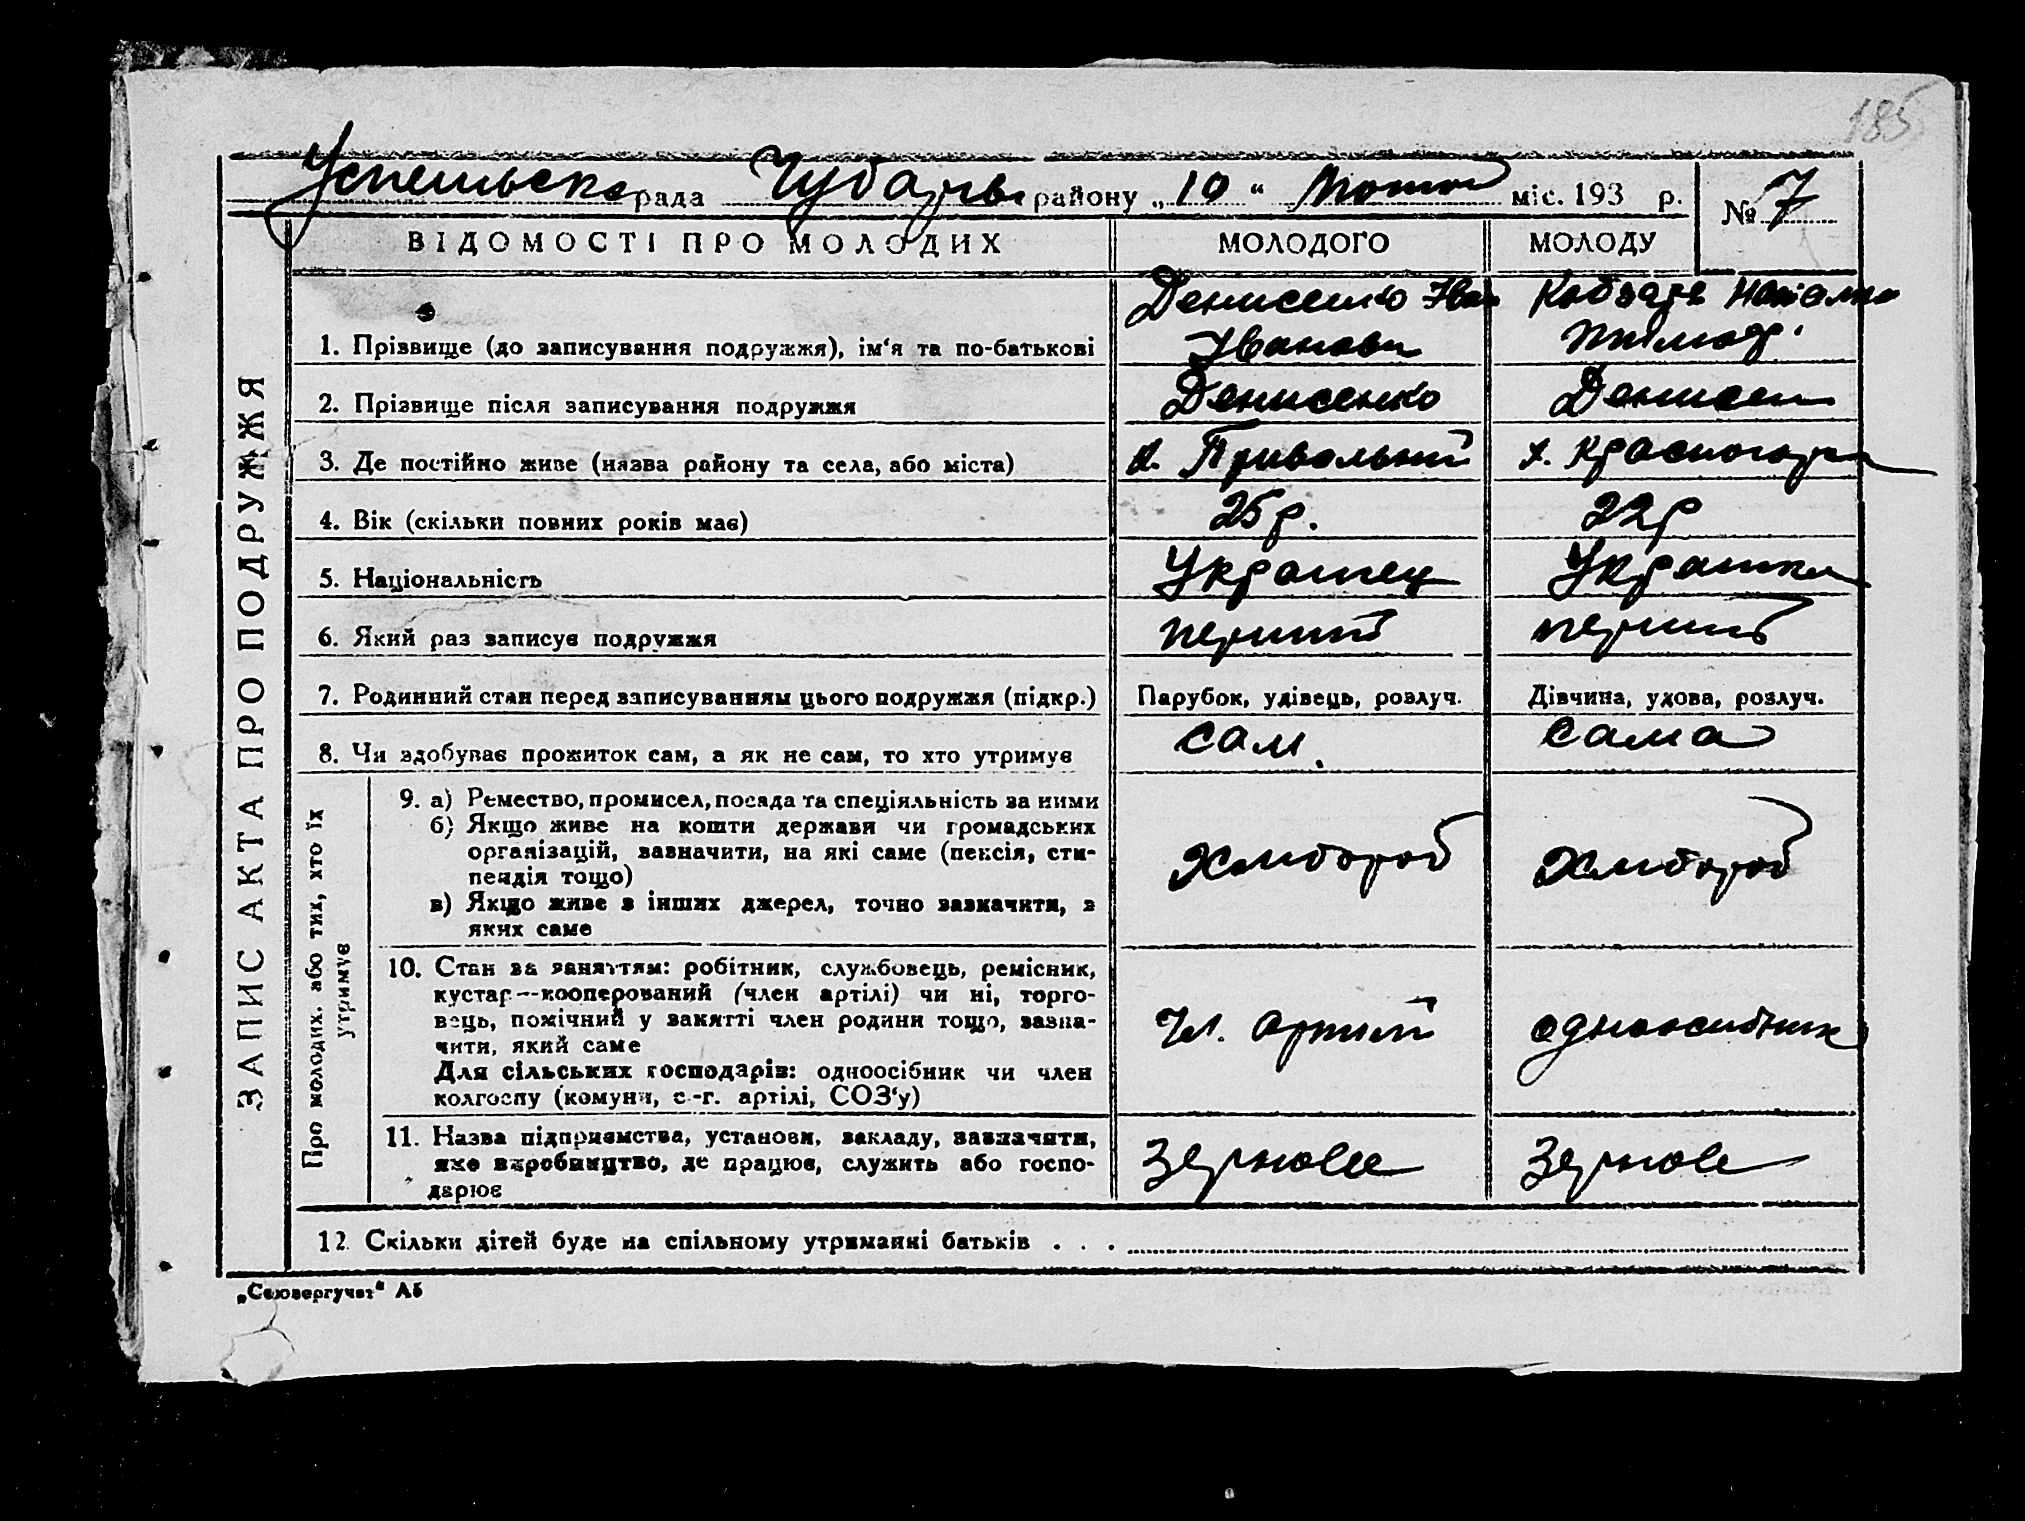 185
Успенська рада Чубарівс району „10" Лютого міс. 193 р. № 7
ВІДОМОСТІ ПРО МОЛОДИХ МОЛОДОГО МОЛОДУ
ЗАПИС АКТА ПРО ПОДРУЖЖЯ
Денисенко Іван
1. Прізвище (до записування подружжя), ім'я та по-батькові Іванови
2. Прізвище після записування подружжя Денисенко Денисен
3. Де постійно живе (назва району та села, або міста) х. Привольний х.
4. Вік (скільки повних років має) 25 р. 22 р
5. Національність Украинец Украинка
6. Який раз записує подружжя перший перший
7. Родинний стан перед записуванням цього подружжя (підкр.) Парубок, удівець, розлуч. Дівчина, удова, розлуч.
8. Чи здобуває прожиток сам, а як не сам, то хто утримує сам. сама
Про молодих, або тих, хто їх
утримує
9. а) Ремество, промисел, посада та спеціяльність за ними
б) Якщо живе на кошти держави чи громадських
організацій, зазначити, на які саме (пенсія, сти-
пендія тощо)
в) Якщо живе з інших джерел, точно зазначити, з
яких саме
Хлибороб Хлибороб
10. Стан за заняттям: робітник, службовець, ремісник,
кустар—кооперований (член артілі) чи ні, торго-
вець, помічний у занятті член родини тощо, зазна-
чити, який саме
Для сільських господарів: одноосібник чи член
колгоспу (комуни, с.-г. артілі, СОЗ'у)
Чл. артилі одноосибник
11. Назва підприємства, установи, закладу, зазначити,
яке виробництво, де працює, служить або госпо-
дарює
Зернове Зернове
12. Скільки дітей буде на спільному утриманні батьків . . .
„Союзоргучет" А5